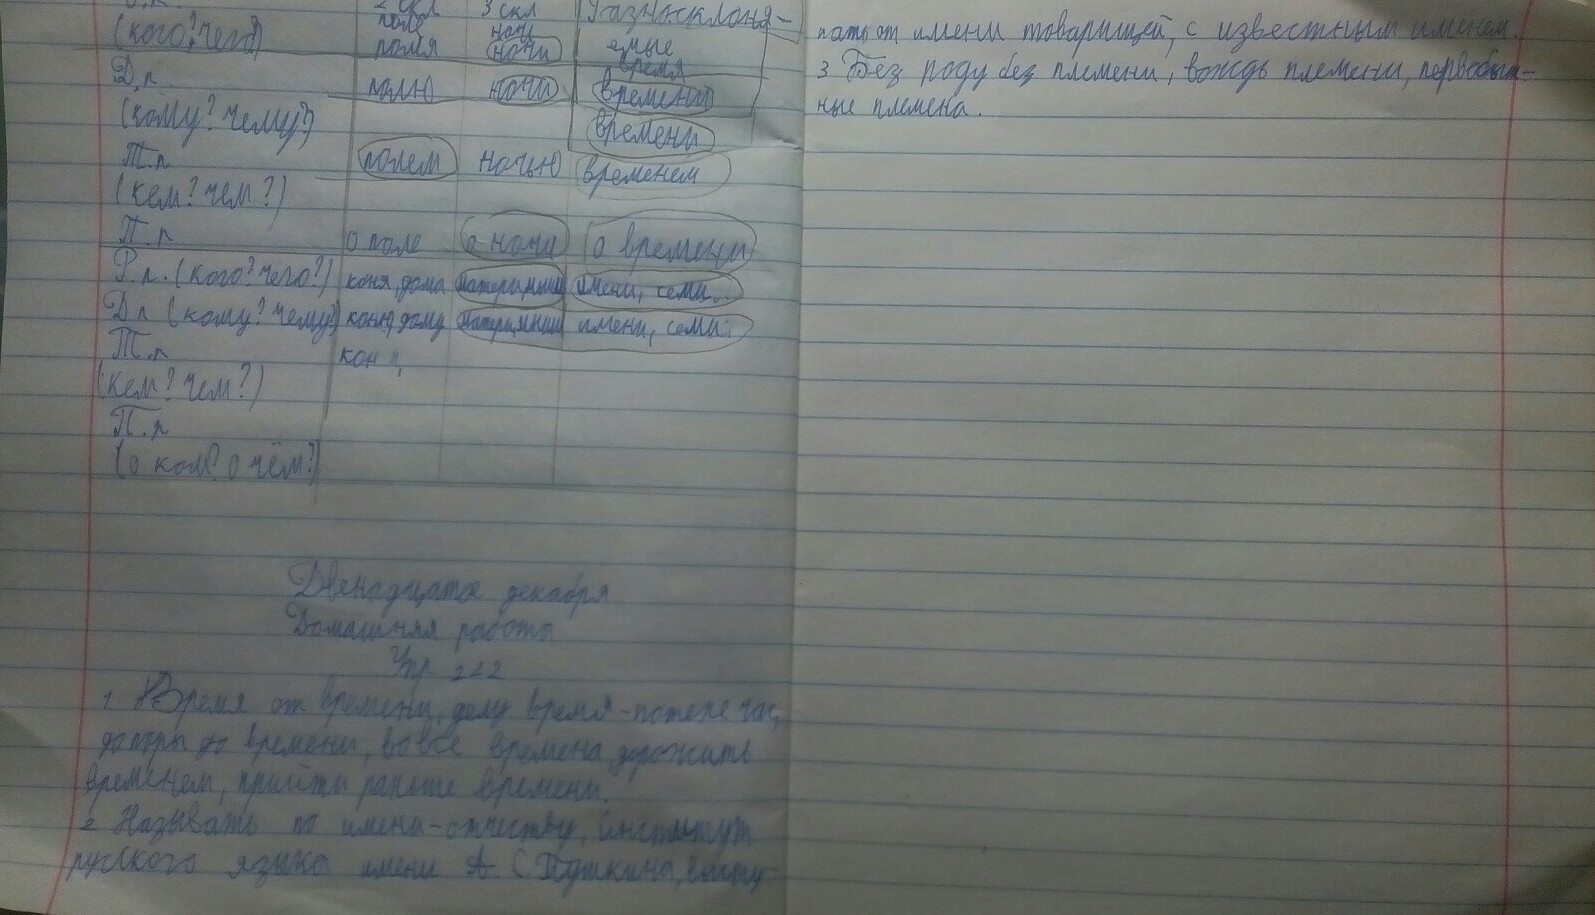 2 скл 3 скл Разносклоня-
поле ночь емые
(кого? чего) поля ночи время
Д.п. полю ночи времени
(кому? чему?) времени
Т.п полем ночью временем
(кем? чем?)
П.п о поле о ночи о времени
Р.п. (кого? чего?) коня, дома имени, семи..
Д.п (кому? чему?) коню, дому имени, семи.
Т.п кон
(кем? чем?)
П.п
(о ком? о чём?)
Двенадцатое декабря
Домашняя работа
Упр 222
1 Время от времени, делу время-потехе час,
до поры до времени, во все времена, дорожить
временем, прийти раньше времени.
2 Называть по имени-отчеству, институт
русского языка имени А. С. Пушкина, высту-
пать от имени товарищей, с известным именем.
3 Без роду без племени, вождь племени, первобыт-
ные племена.